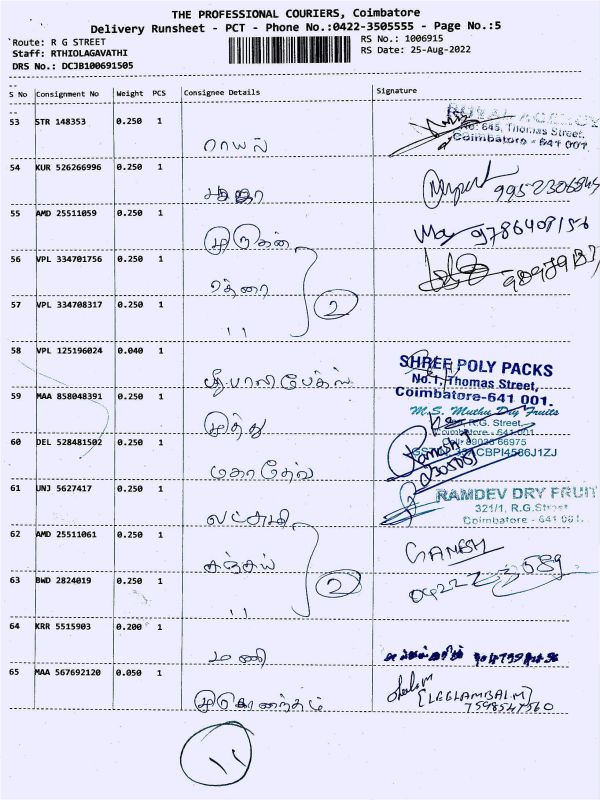 THE PROFESSIONAL COURIERS, Coimbatore
Delivery Runsheet - PCT - Phone No.:0422-3505555 - Page No.:5
Route: R G STREET
RS No.: 1006915
Staff: RTHIOLAGAVATHI
RS Date: 25-Aug-2022
DRS No.: DCJB100691505
S No Consignment No Weight PCS Consignee Details Signature
53 STR 148353 0.250 1
ராயல்
ROYAL AGENCY
No: 845, Thomas Street,
Coimbatore - 641 001
54 KUR 526266996 0.250 1
பூஜா
55 AMD 25511059 0.250 1
முருகன்
9786408156
56 VPL 334701756 0.250 1
2
57 VPL 334708317 0.250 1
"
58 VPL 125196024 0.040 1
SHREE POLY PACKS
No.1, Thomas Street,
Coimbatore-641 001.
59 MAA 858048391 0.250 1
முத்து
M.S. Muthu Dry Fruits
R.G. Street,
Coimbatore - 641 001
60 DEL 528481502 0.250 1
மகாதேவ்
Ramesh
61 UNJ 5627417 0.250 1
லட்சுமி
RAMDEV DRY FRUIT
321/1, R.G.Street
Coimbatore - 641 001.
62 AMD 25511061 0.250 1
சஞ்சய்
GANESH
2
63 BWD 2824019 0.250 1
"
64 KRR 5515903 0.200 1
மணி
65 MAA 567692120 0.050 1
முருகானந்தம்
[LEELAMBAL.M]
7598547560
11